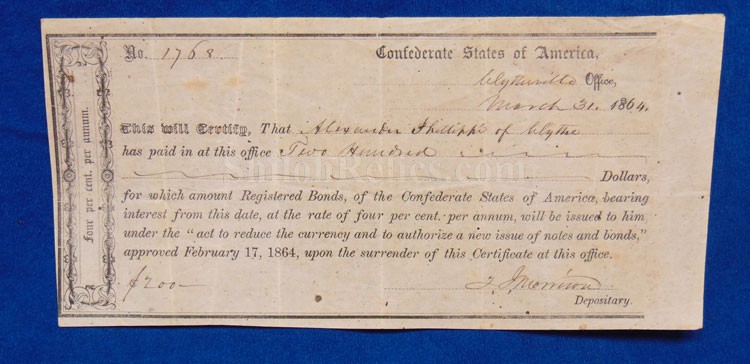 No. 1768. Confederate States of America,
Wytheville Office,
March 31. 1864.
This will Certify, That Alexander Phillippi of Wythe
has paid in at this office Two Hundred
Dollars,
for which amount Registered Bonds, of the Confederate States of America, bearing
interest from this date, at the rate of four per cent. per annum, will be issued to him
under the "act to reduce the currency and to authorize a new issue of notes and bonds,"
approved February 17, 1864, upon the surrender of this Certificate at this office.
$200 Morrison
Depositary.
Four per cent. per annum.